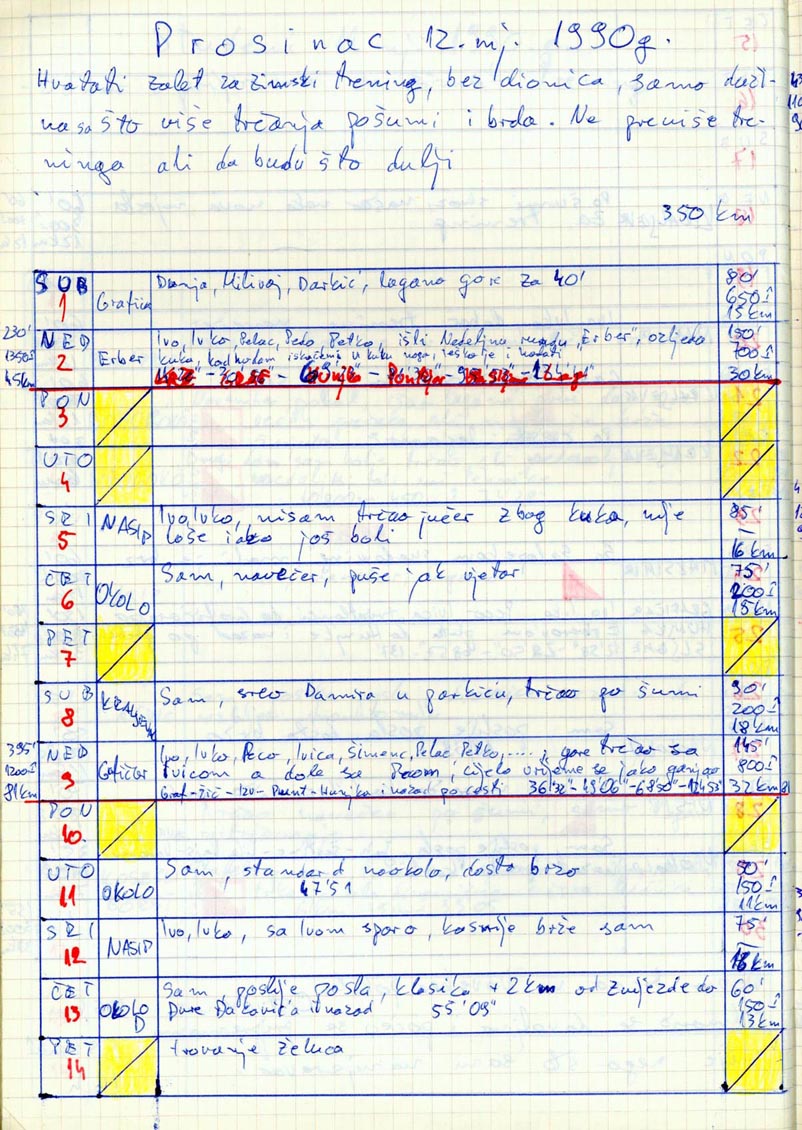 Prosinac 12. mj. 1990g.
Hvatati zalet za zimski trening, bez dionica, samo duži-
na sa što više trčanja po šumi i brda. Ne previše tre-
ninga ali da budu što dulji
350 km
SUB 1 Grafičar Dunja, Milivoj, Darkić, lagano gore za 40' 80' 650 15 km
NED 2 Erber Ivo, Luko, Pelac, Pedo, Petko, išli Nedeljnu rundu "Erber", ozljeda 150' 700
230' 1350 45 km kuka, kad hodam u kuku noga, teško je i hodati
30 km
PON 3
UTO 4
SRI 5 NASIP Ivo, Luko, nisam trčao jučer zbog kuka, nije 85' –
loše iako još boli 16 km
ČET 6 OKOLO Sam, navečer, puše jak vjetar 75' 200 15 km
PET 7
SUB 8 Sam, sreo Damira u parkiću, trčao po šumi 90' 200 18 km
NED 9 Grafičar Ivo, Luko, Peco, Ivica, Šimenc, Pelac, Petko, .... , gore trčao sa 145'
395' 1200 81 km Ivicom a dole sa cijelo vrijeme se jako ganjao 800
Graf-Žič- -Punt-Hunjka i nazad po cesti 36'32"-49'06"-68'50" 32 km
PON 10.
UTO 11 OKOLO Sam, standard naokolo, dosta brzo 50' 150 11 km
47'51
SRI 12 NASIP Ivo, Luko, sa Ivom sporo, kasnije brže sam 75' – 16 km
ČET 13 OKOLO D Sam poslije posla, klasika + 2 km od zvijezde do 60' 150
Đure Đakovića i nazad 55'09" 13 km
PET 14 trovanje želuca